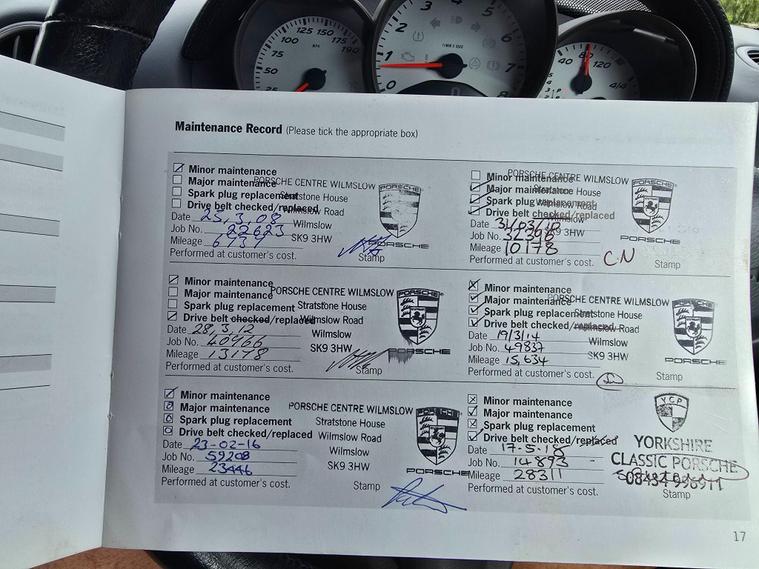 25 50 75 100 125 150 175 190
MPH
0 1 2 3 4 5 6 7
40 80 120
Maintenance Record (Please tick the appropriate box)
Minor maintenance
Major maintenance PORSCHE CENTRE WILMSLOW
Spark plug replacement Stratstone House
Drive belt checked/replaced Wilmslow Road
Date 25,3,08 Wilmslow
Job No. 22623 SK9 3HW
Mileage 6737 PORSCHE
Performed at customer's cost. Stamp
Minor maintenance PORSCHE CENTRE WILMSLOW
Major maintenance Stratstone House
Spark plug replacement Wilmslow Road
Drive belt checked/replaced
Date 31/03/10 Wilmslow
Job No. 32396 SK9 3HW
Mileage 10178 PORSCHE
Performed at customer's cost. CN Stamp
Minor maintenance
Major maintenance PORSCHE CENTRE WILMSLOW
Spark plug replacement Stratstone House
Drive belt checked/replaced Wilmslow Road
Date 28,3,12 Wilmslow
Job No. 40966 SK9 3HW
Mileage 13178 PORSCHE
Performed at customer's cost. Stamp
Minor maintenance
Major maintenance PORSCHE CENTRE WILMSLOW
Spark plug replacement Stratstone House
Drive belt checked/replaced Wilmslow Road
Date 19/3/14 Wilmslow
Job No. 49837 SK9 3HW
Mileage 15,634 PORSCHE
Performed at customer's cost. Stamp
Minor maintenance
Major maintenance PORSCHE CENTRE WILMSLOW
Spark plug replacement Stratstone House
Drive belt checked/replaced Wilmslow Road
Date 23-02-16 Wilmslow
Job No. 59208 SK9 3HW
Mileage 23446 PORSCHE
Performed at customer's cost. Stamp
Minor maintenance YCP
Major maintenance
Spark plug replacement
Drive belt checked/replaced YORKSHIRE
Date 17-5-18
Job No. 14893 CLASSIC PORSCHE
Mileage 28311
Performed at customer's cost. Stamp
17